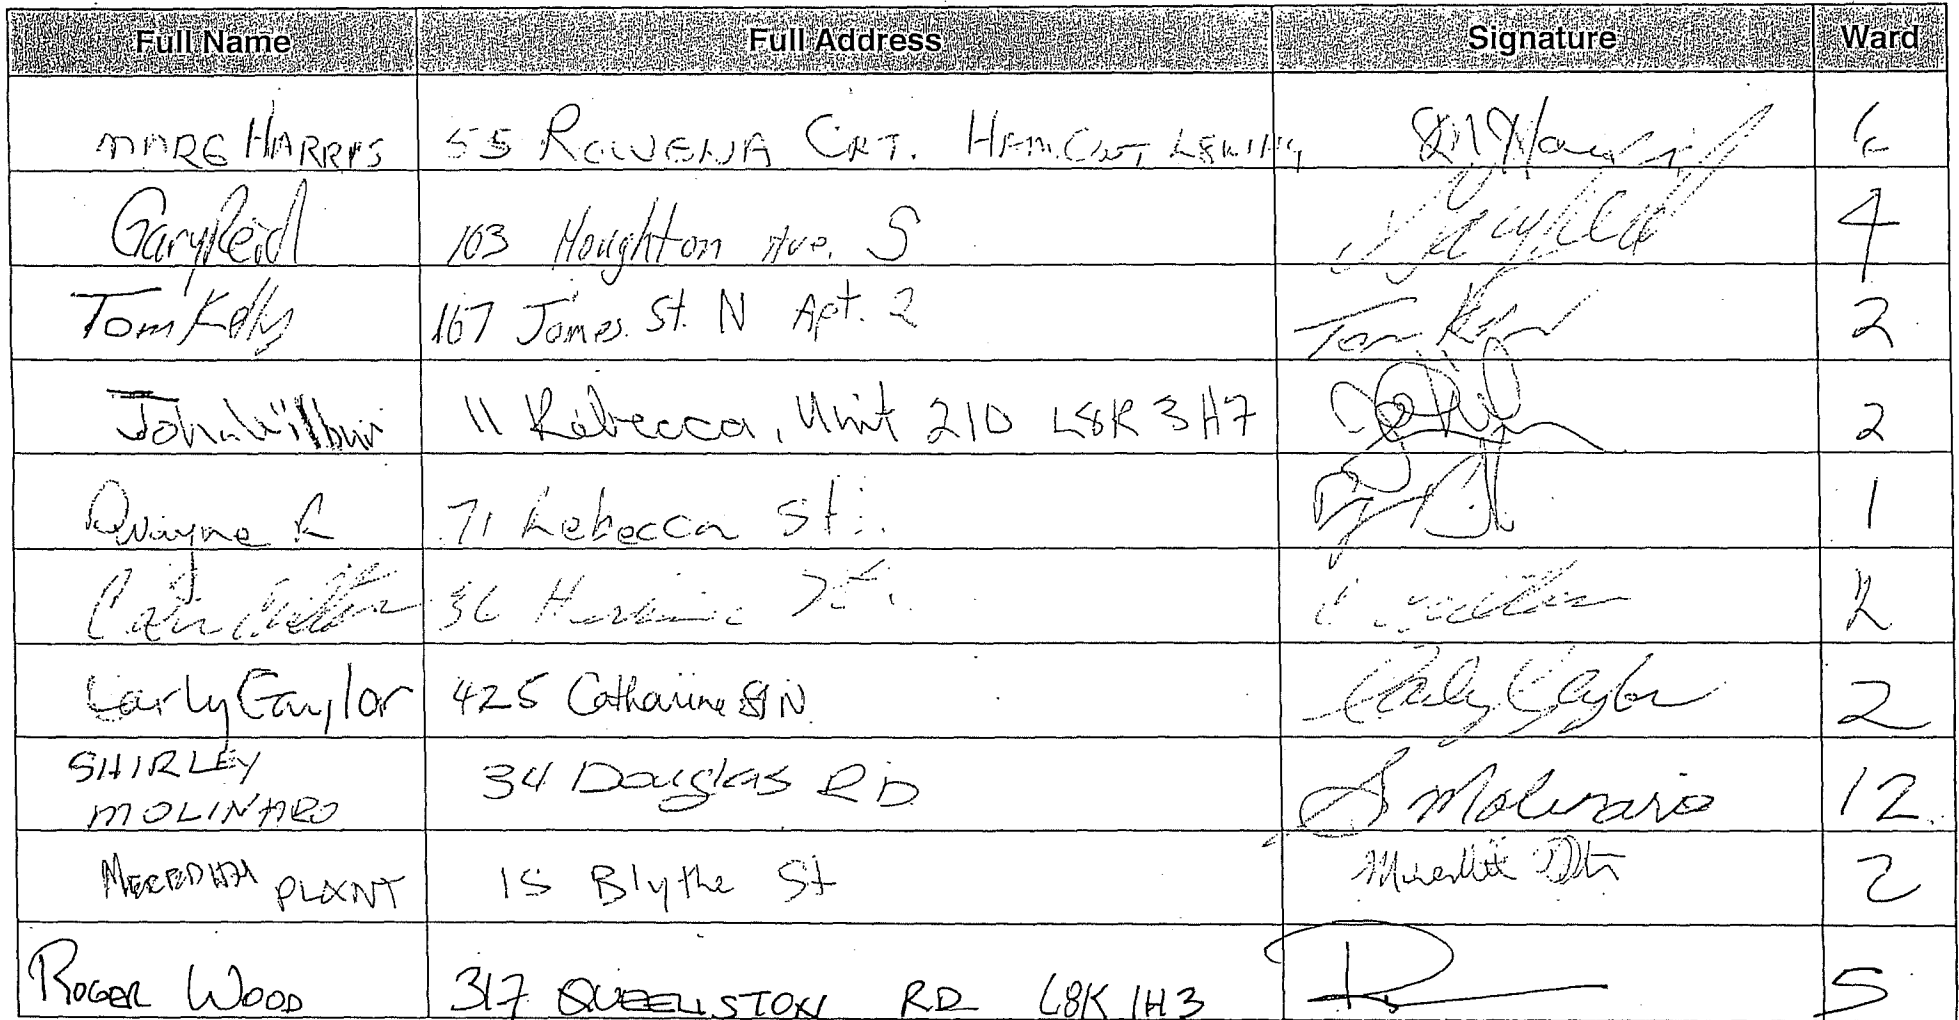 Full Name Full Address Signature Ward
MARG HARRIS 55 ROWENA CRT. HAM. ONT, L8K1H4
Gary Reid 103 Houghton Ave. S Gary Reid 4
Tom Kelly 167 James St. N Apt. 2 Tom Kelly 2
John Wilbur 11 Rebecca, Unit 210 L8R 3H7 2
Dwayne R 71 Rebecca St. 1
36 St. 2
Carly Gaylor 425 Catharine St N Carly Gaylor 2
SHIRLEY
MOLINARO 34 Douglas RD S Molinaro 12
MEREDITH PLANT 15 Blythe St Meredith 2
ROGER WOOD 317 QUEENSTON RD L8K 1H3 5